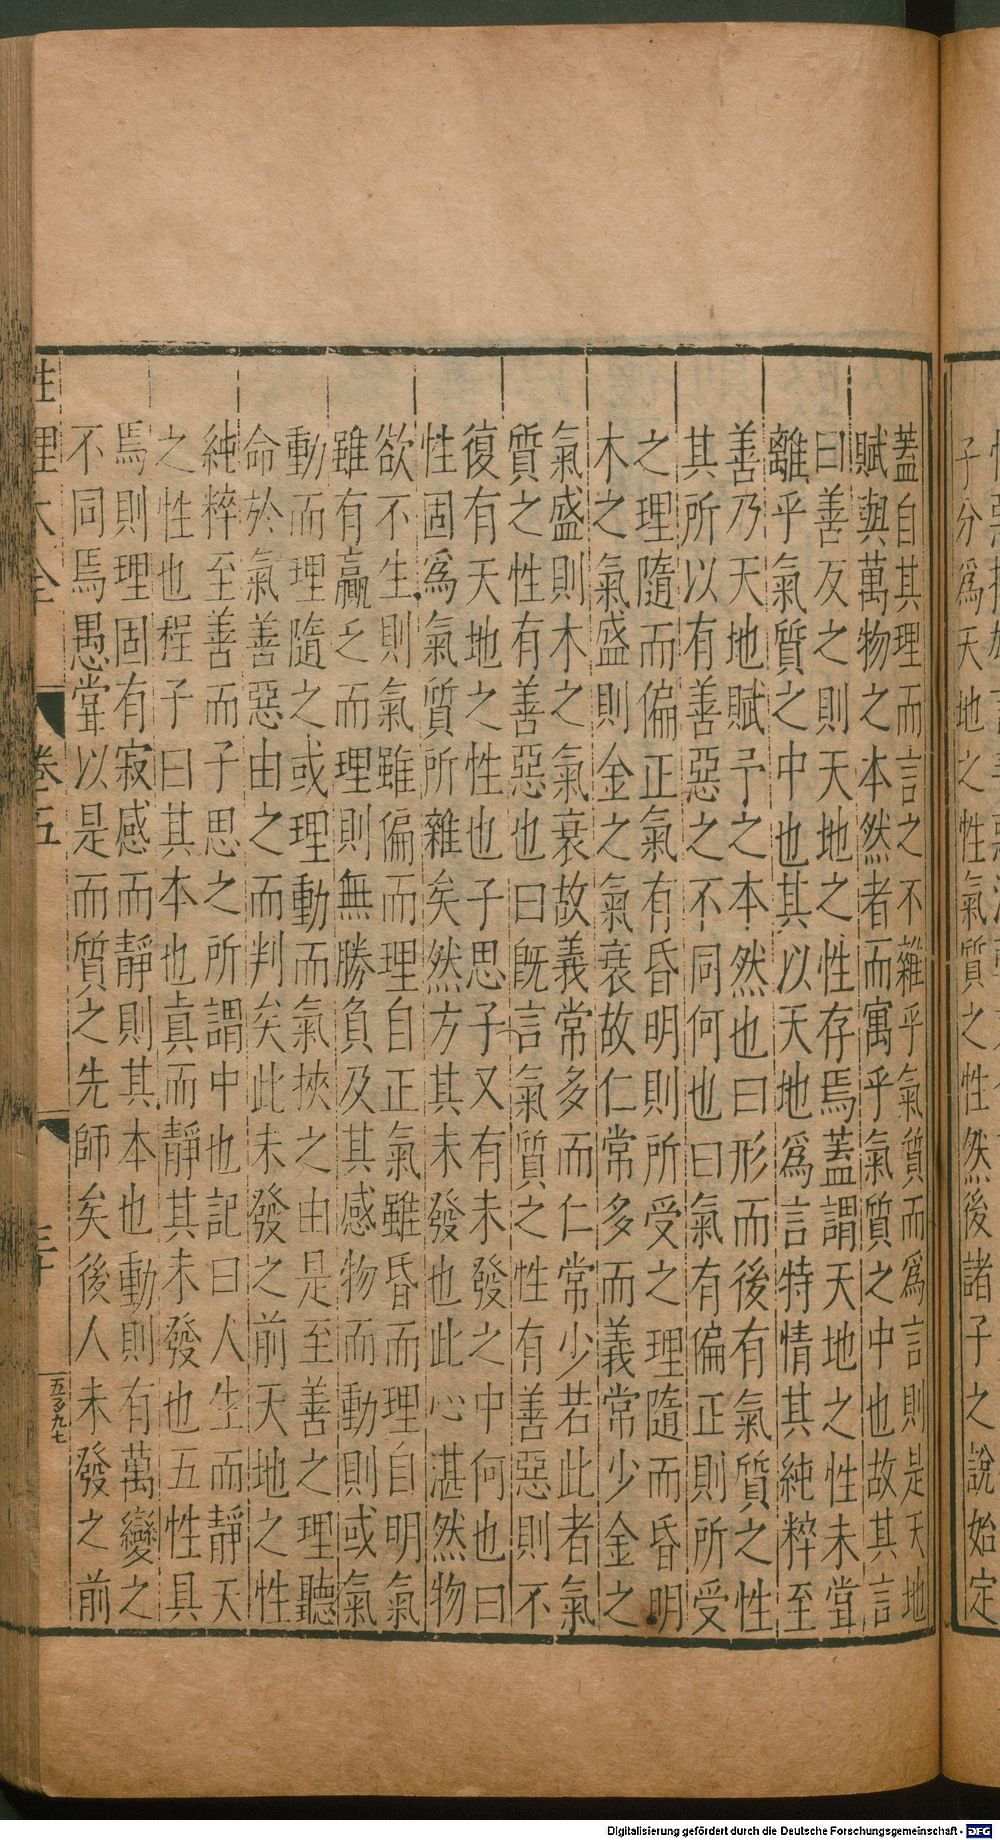 子分爲天地之性氣質之性然後諸子之說始定
蓋自其理而言之不雜乎氣質而爲言則是天地
賦與萬物之本然者而寓乎氣質之中也故其言
曰善反之則天地之性存焉蓋謂天地之性未嘗
離乎氣質之中也其以天地爲言特情其純粹至
善乃天地賦予之本然也曰形而後有氣質之性
其所以有善惡之不同何也曰氣有偏正則所受
之理隨而偏正氣有昏明則所受之理隨而昏明
木之氣盛則金之氣衰故仁常多而義常少金之
氣盛則木之氣衰故義常多而仁常少若此者氣
質之性有善惡也曰旣言氣質之性有善惡則不
復有天地之性也子思子又有未發之中何也曰
性固爲氣質所雜矣然方其未發也此心湛然物
欲不生則氣雖偏而理自正氣雖昏而理自明氣
雖有贏乏而理則無勝負及其感物而動則或氣
動而理隨之或理動而氣挾之由是至善之理聽
命於氣善惡由之而判矣此未發之前天地之性
純粹至善而子思之所謂中也記曰人生而靜天
之性也程子曰其本也眞而靜其未發也五性具
焉則理固有寂感而靜則其本也動則有萬變之
不同焉愚嘗以是而質之先師矣後人未發之前
性理大全 卷五 三十 五万九七
Digitalisierung gefördert durch die Deutsche Forschungsgemeinschaft - DFG